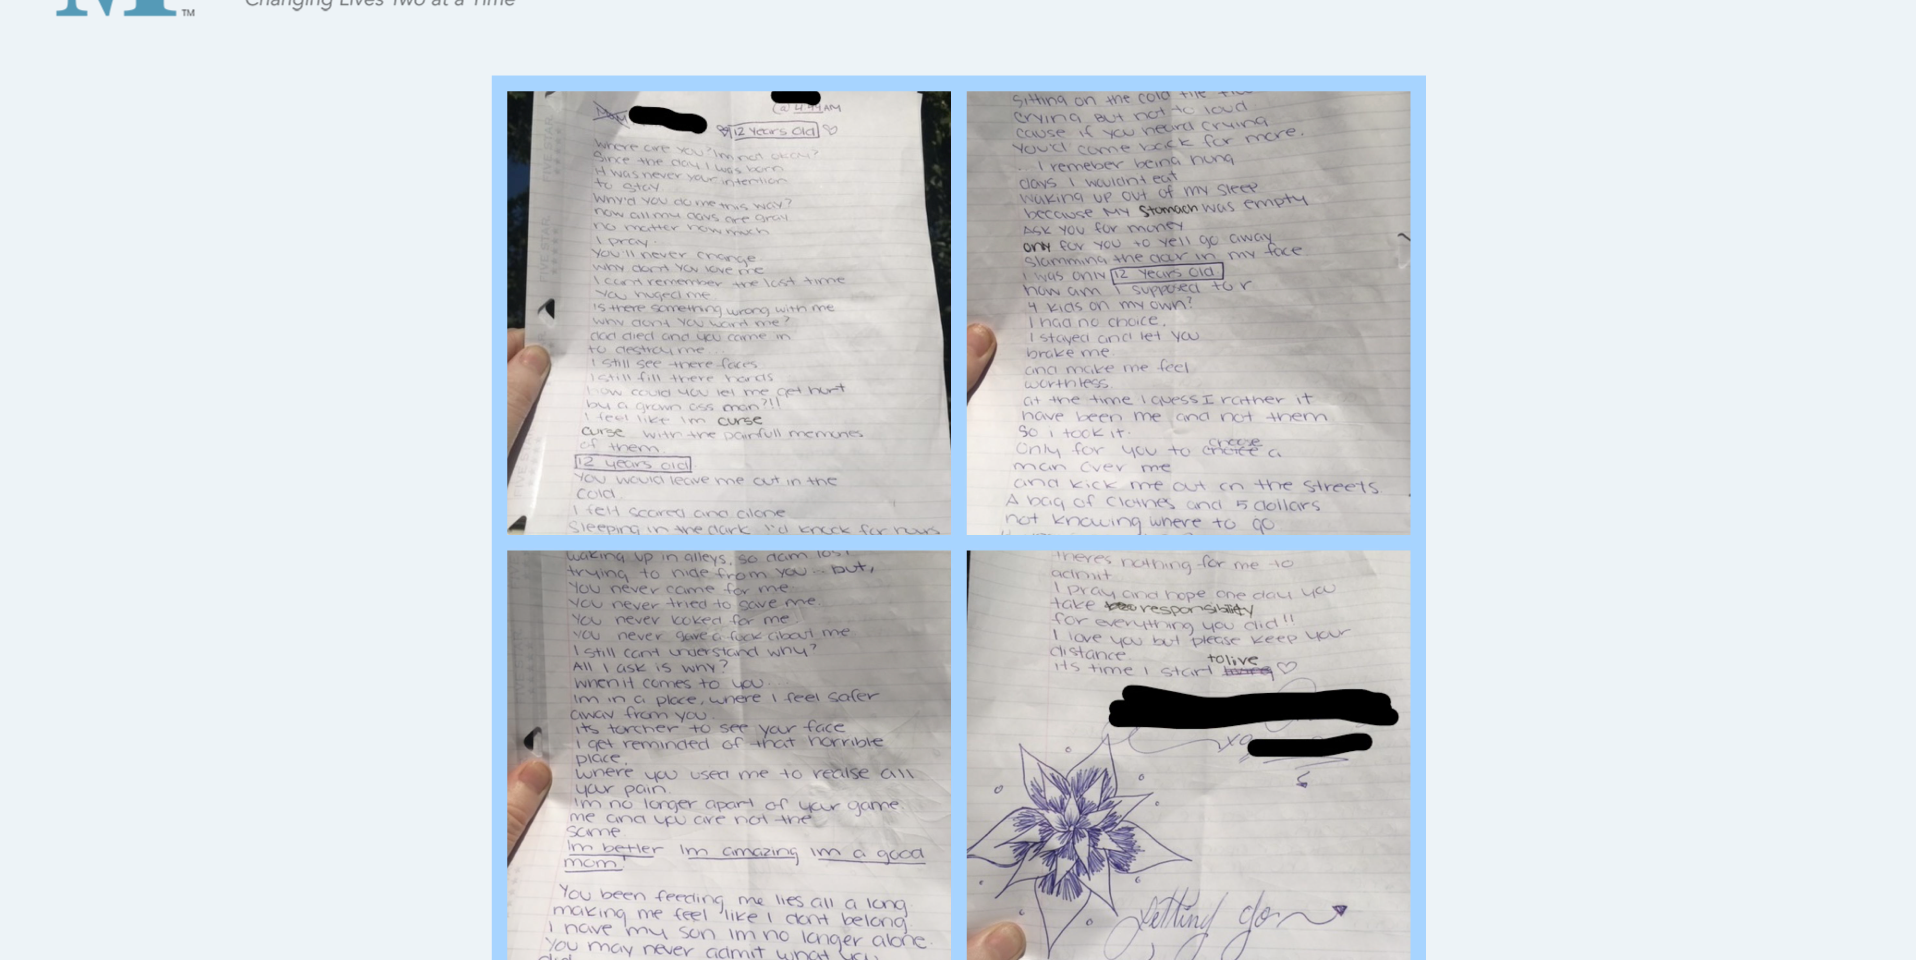 TM
Changing Lives Two at a Time
AM
12 years old
Where are you? Im not okay?
Since the day I was born
it was never your intention
to stay
Why'd you do me this way?
now all my days are gray
no matter how much
I pray.
You'll never change
Why dont you love me
I cant remember the last time
You huged me
is there something wrong with me
why dont you want me?
dad died and you came in
to destroy me
I still see there faces
I still fill there hands
How could you let me get hurt
by a grown ass man?!!
I feel like Im curse
curse with the painfull memories
of them
12 years old
You would leave me out in the
cold
I felt scared and alone
Sleeping in the dark I'd knock for hours
Sitting on the cold
crying But not to loud
cause if you heard crying
You'd come back for more.
I remeber being hung
days I wouldnt eat
waking up out of my sleep
because my stomach was empty
Ask you for money
only for you to yell go away
slamming the door in my face
I was only 12 years old
how am I supposed to r
4 kids on my own?
I had no choice,
I stayed and let you
brake me
and make me feel
worthless.
at the time I guess I rather it
have been me and not them
So I took it.
Only for you to choose a
man over me
and kick me out on the streets
A bag of clothes and 5 dollars
not knowing where to go
waking up in alleys, so dam lost
trying to hide from you... but,
You never came for me
You never tried to save me.
You never looked for me
You never gave a fuck about me
I still cant understand why?
All I ask is why?
when it comes to you
Im in a place, where I feel safer
away from you.
its torcher to see your face
I get reminded of that horrible
place,
where you used me to realse all
your pain.
Im no longer apart of your game.
me and you are not the
same
Im better Im amazing Im a good
mom!
You been feeding me lies all a long
making me feel like I dont belong.
I have my son Im no longer alone.
You may never admit what you
did
theres nothing for me to
admit
I pray and hope one day you
take responsibility
for everything you did!!
I love you but please keep your
distance.
its time I start to live
xo
Letting go